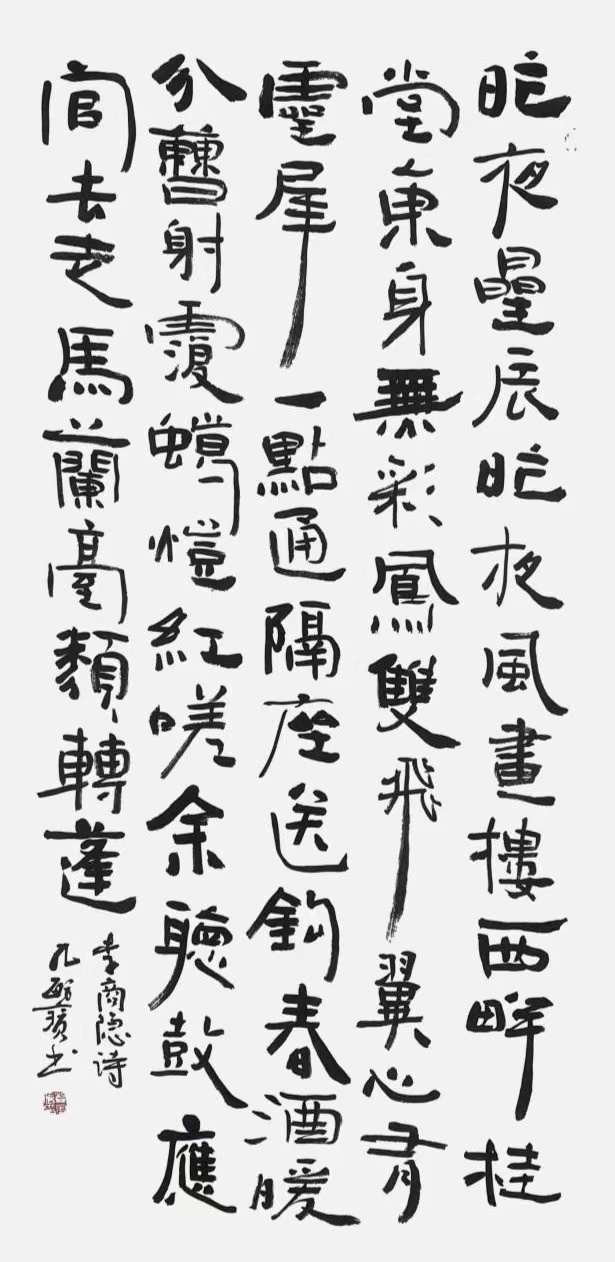 昨夜星辰昨夜風畫樓西畔桂
堂東身無彩鳳雙飛翼心有
靈犀一點通隔座送鈎春酒暖
分曹射覆蠟燈紅嗟余聽鼓應
官去走馬蘭臺類轉蓬
李商隐诗
孔书